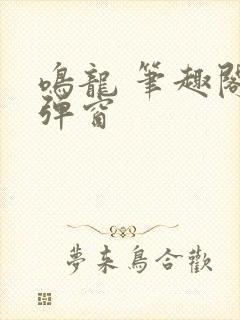 鳴龍 筆趣閣
彈窗
夢來鳥合歡